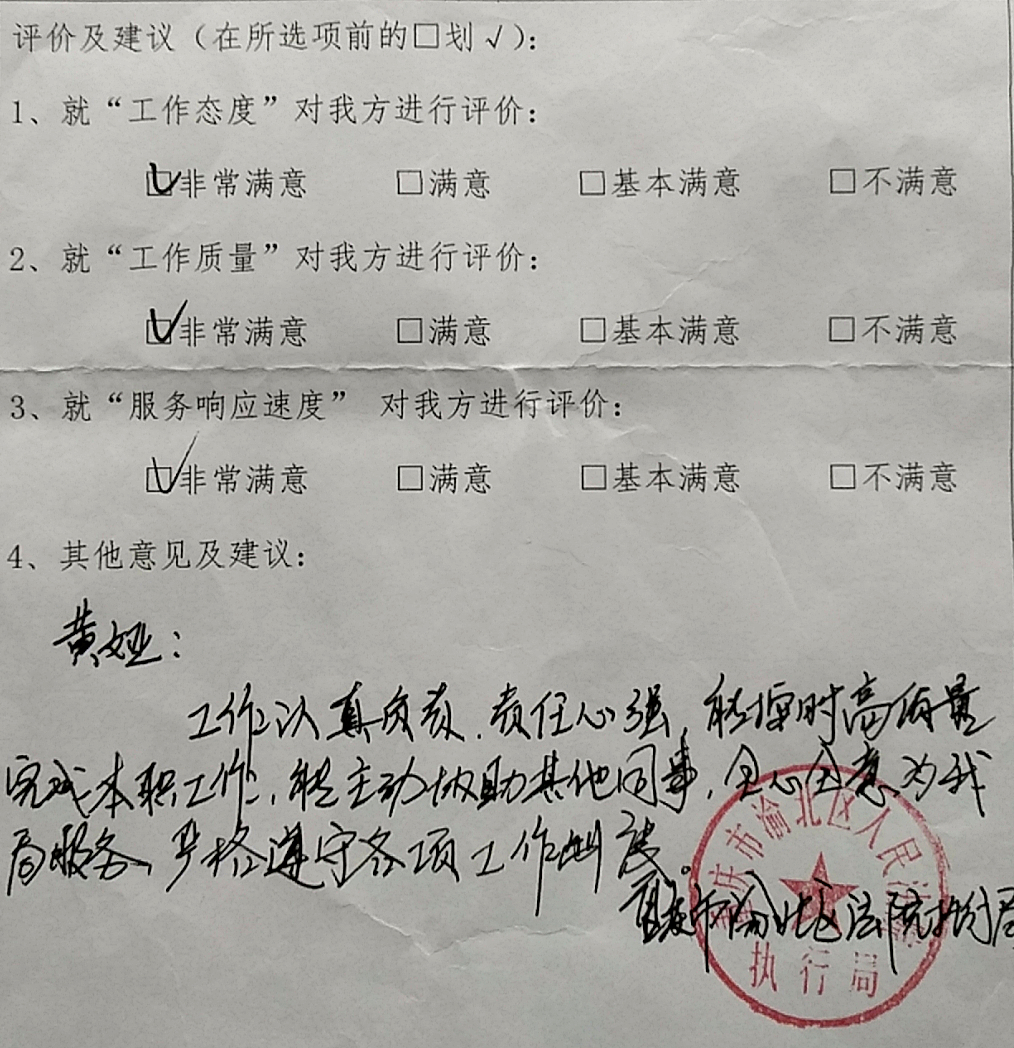 评价及建议（在所选项前的□划√）：
1、就“工作态度”对我方进行评价：
☑非常满意 □满意 □基本满意 □不满意
2、就“工作质量”对我方进行评价：
☑非常满意 □满意 □基本满意 □不满意
3、就“服务响应速度” 对我方进行评价：
☑非常满意 □满意 □基本满意 □不满意
4、其他意见及建议：
黄娅：
工作认真负责，责任心强，能按时高质量
完成本职工作，能主动协助其他同事，全心全意为我
局服务，严格遵守各项工作制度。
重庆市渝北区法院执行局
重庆市渝北区人民法院
执行局